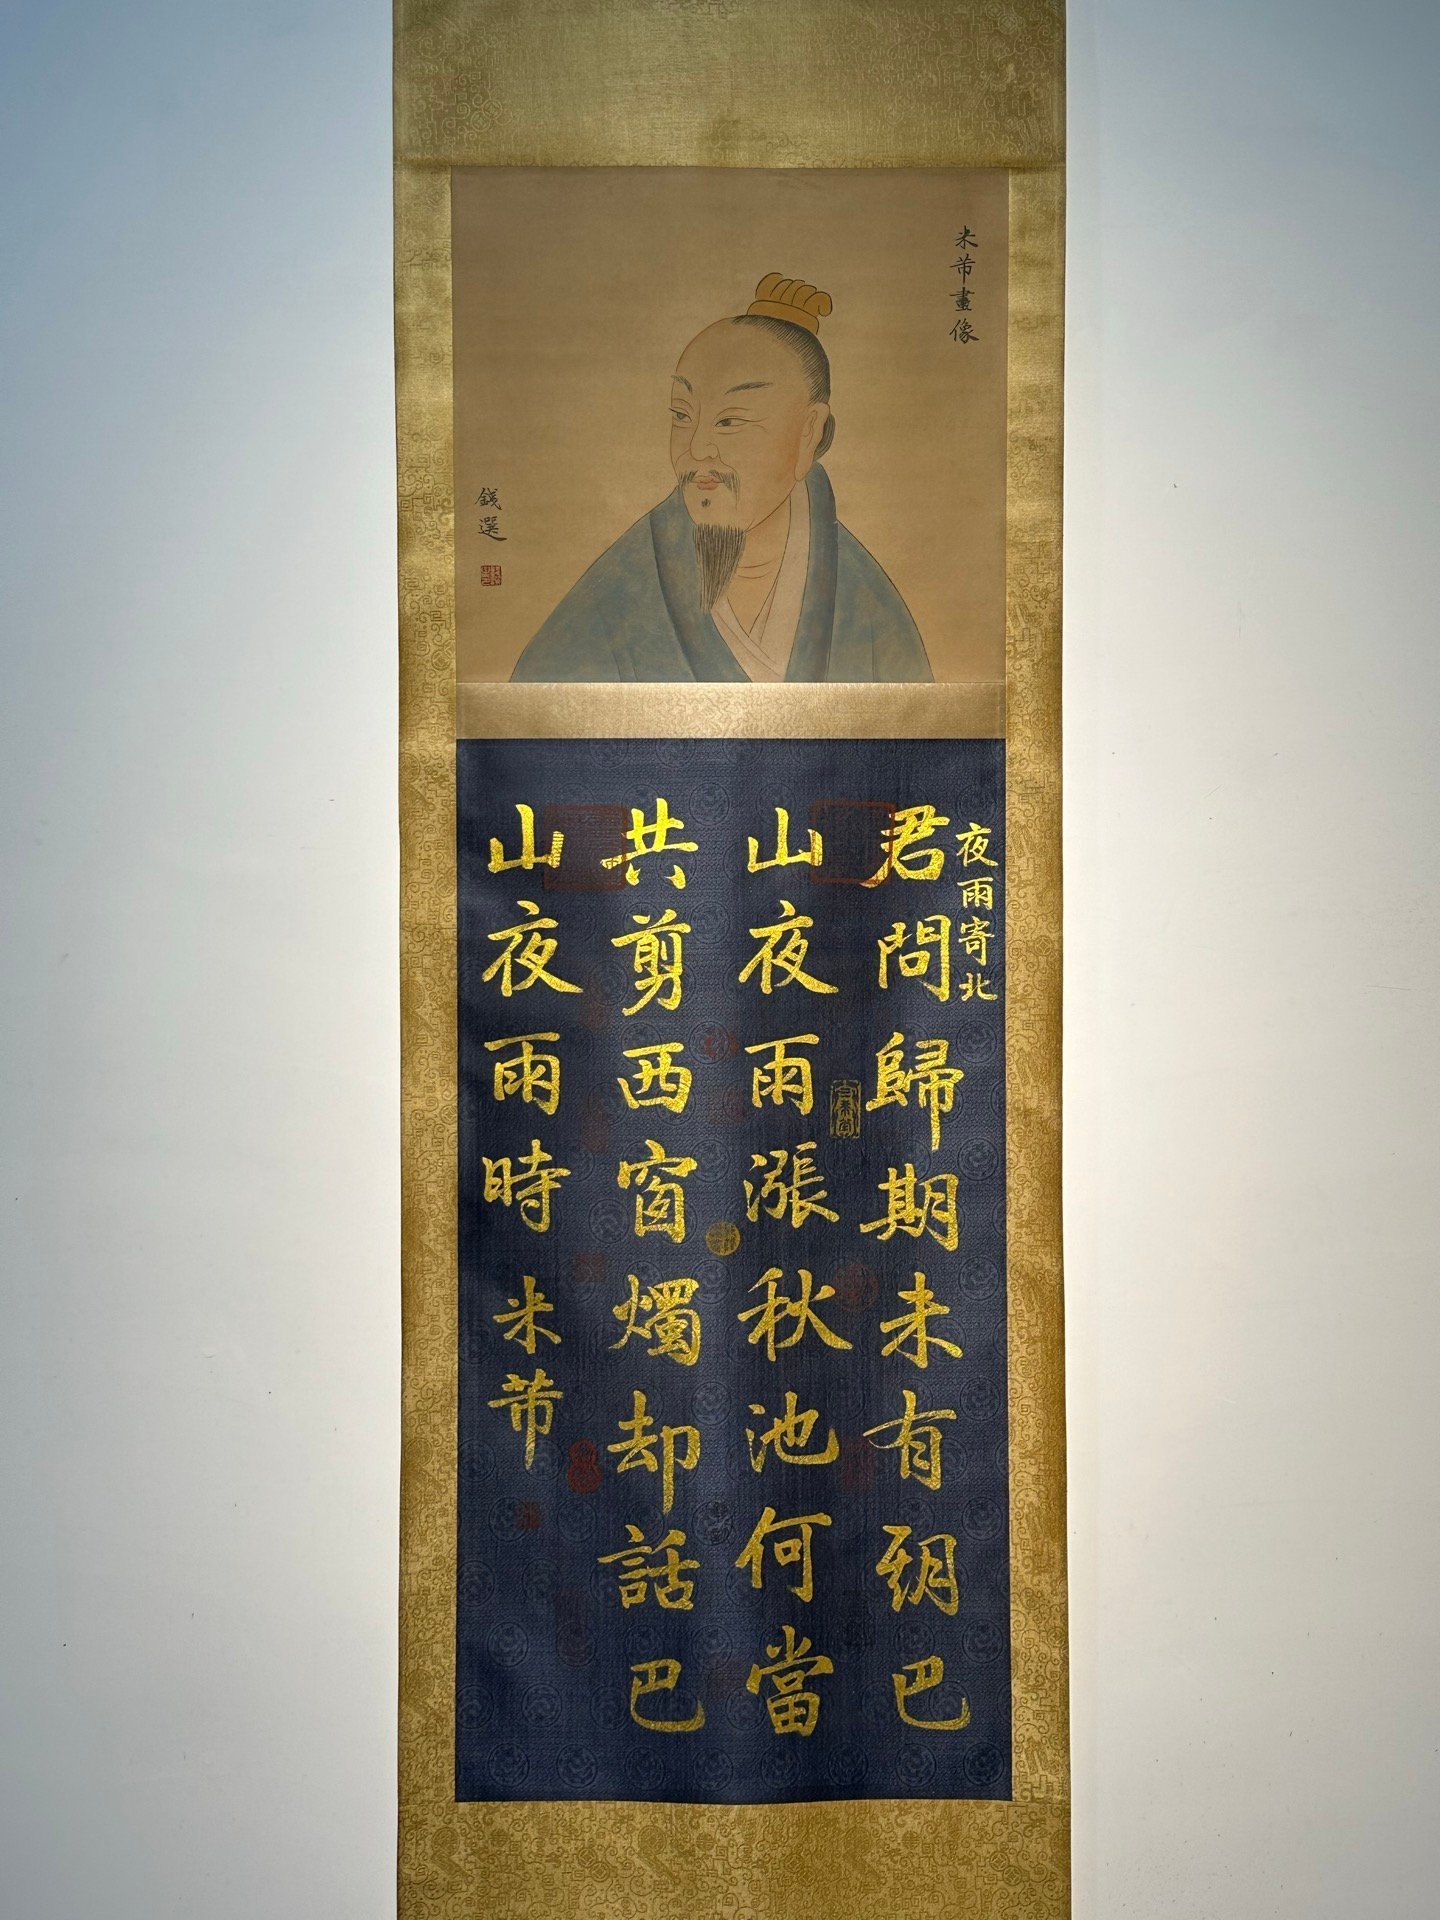 米芾畫像
錢選
夜雨寄北
君問歸期未有期巴
山夜雨漲秋池何當
共剪西窗燭却話巴
山夜雨時
米芾